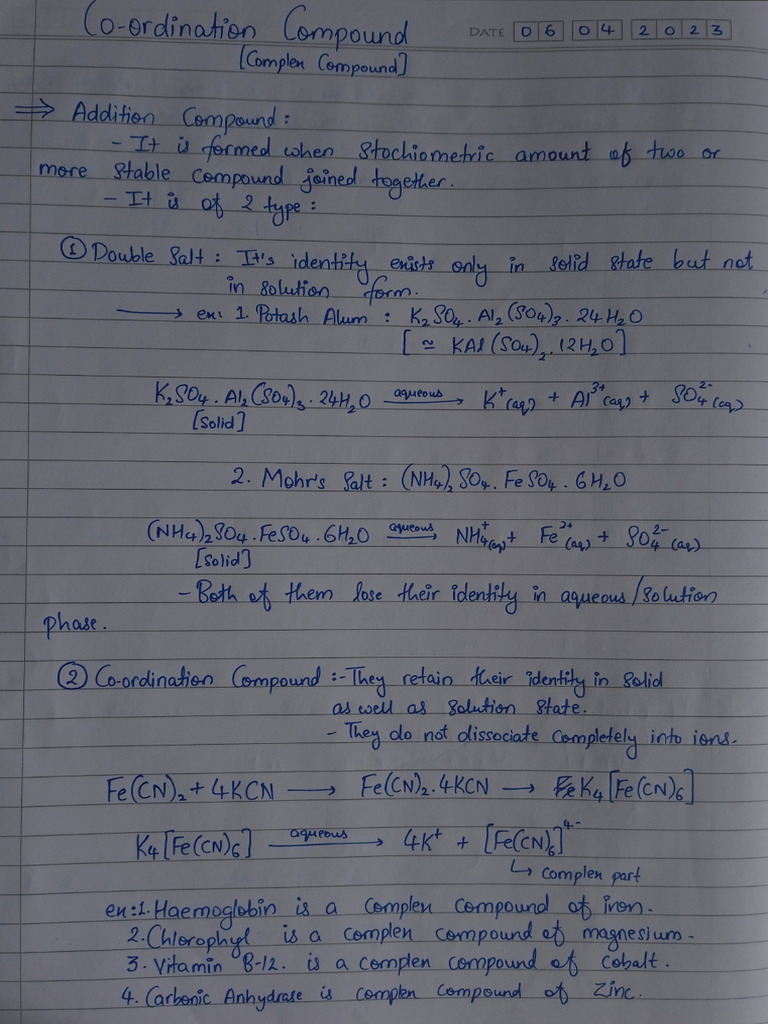 Co-ordination Compound
DATE 06 04 2023
[Complex Compound]
⇒ Addition Compound:
- It is formed when Stochiometric amount of two or
more stable compound joined together.
- It is of 2 type:
① Double Salt: It's identity exists only in solid state but not
in solution form.
→ ex: 1. Potash Alum : K₂SO₄. Al₂(SO₄)₃. 24H₂O
[≃ KAl(SO₄)₂.12H₂O]
K₂SO₄. Al₂(SO₄)₃. 24H₂O —aqueous→ K⁺(aq) + Al³⁺(aq) + SO₄²⁻(aq)
[Solid]
2. Mohr's Salt : (NH₄)₂SO₄. FeSO₄. 6H₂O
(NH₄)₂SO₄. FeSO₄. 6H₂O —aqueous→ NH₄⁺(aq) + Fe²⁺(aq) + SO₄²⁻(aq)
[Solid]
- Both of them lose their identity in aqueous/solution
phase.
② Co-ordination Compound :- They retain their identity in solid
as well as solution state.
- They do not dissociate completely into ions.
Fe(CN)₂ + 4KCN → Fe(CN)₂.4KCN → K₄[Fe(CN)₆]
K₄[Fe(CN)₆] —aqueous→ 4K⁺ + [Fe(CN)₆]⁴⁻
↳ complex part
ex:1. Haemoglobin is a complex compound of iron.
2. Chlorophyl is a complex compound of magnesium.
3. Vitamin B-12. is a complex compound of cobalt.
4. Carbonic Anhydrase is complex compound of Zinc.